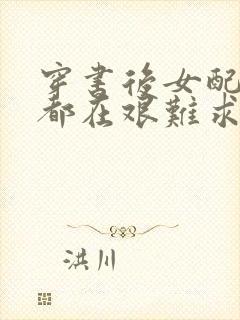 穿書後女配
都在艱難求
洪川